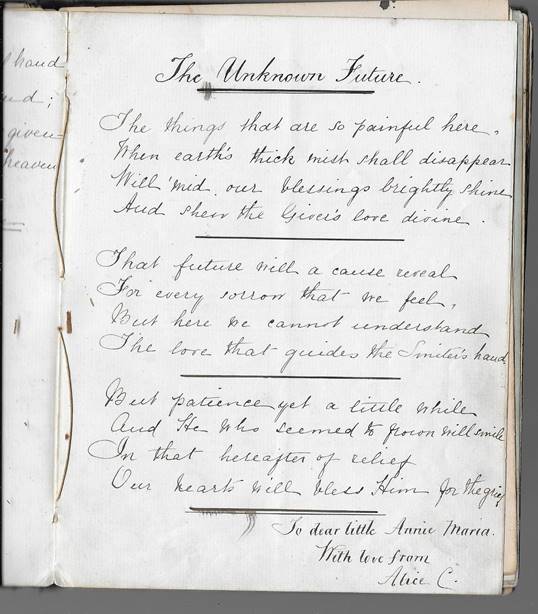 l hand
nd;
given
heaven
The Unknown Future.
The things that are so painful here,
When earth's thick mist shall disappear
Will 'mid our blessings brightly shine
And shew the Giver's love divine.
That future will a cause reveal
For every sorrow that we feel,
But here we cannot understand
The love that guides the Smiter's hand.
But patience yet a little while
And He who seemed to frown will smile
In that hereafter of relief
Our hearts will bless Him for the grief
To dear little Annie Maria.
With love from
Alice C.